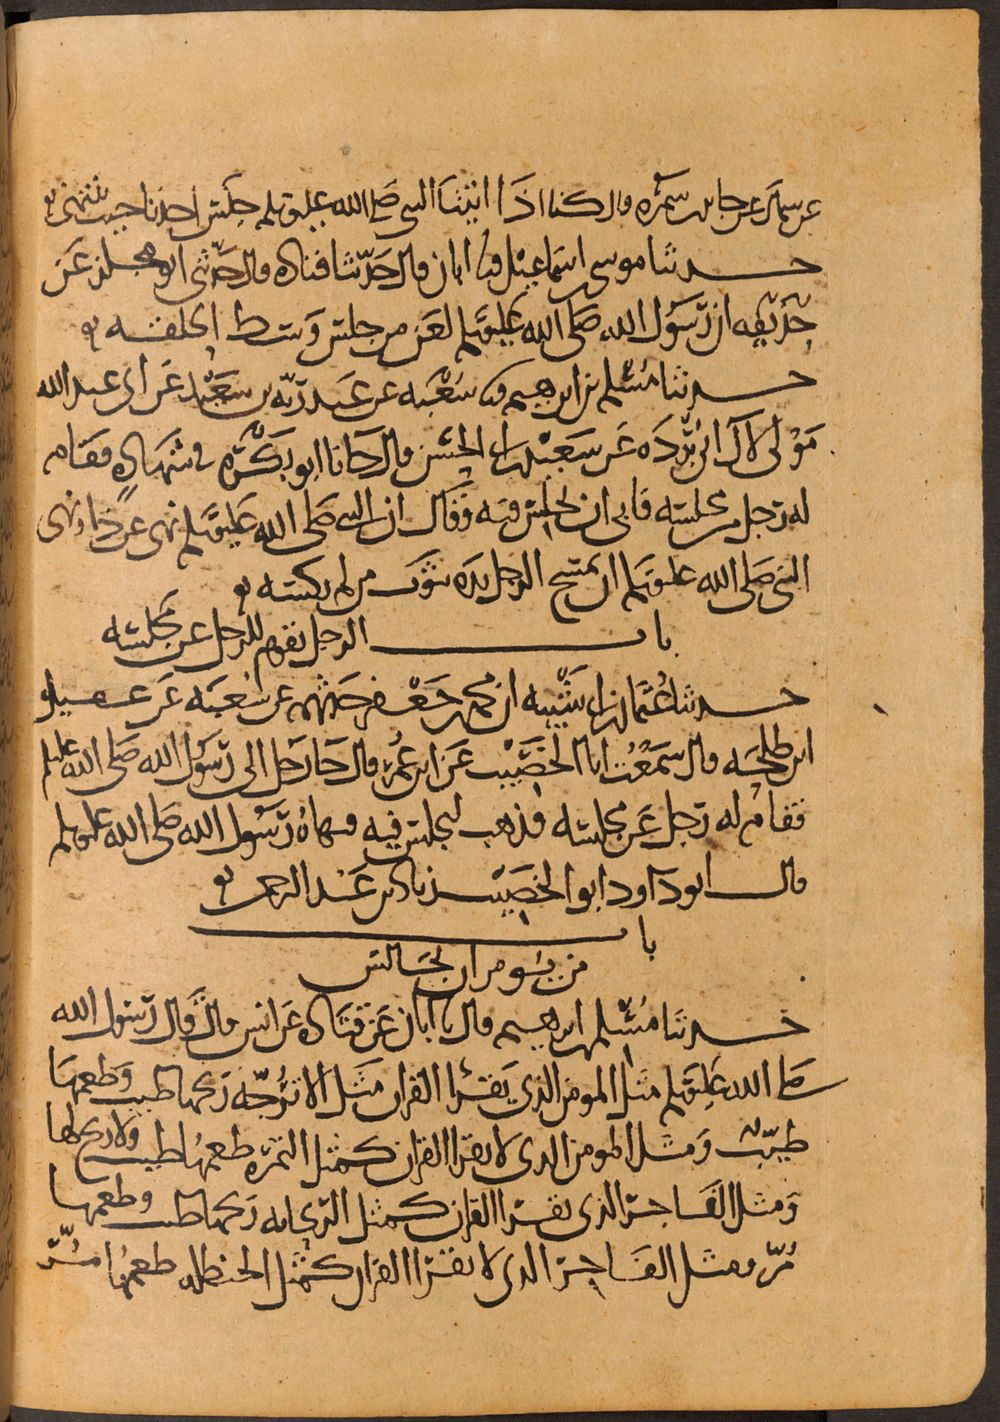 عن سماك عن جابر بن سمرة قال كنا اذا اتينا النبي صلى الله عليه وسلم جلس احدنا حيث ينتهي
حدثنا موسى بن اسماعيل نا ابان قال حدثنا قتادة قال حدثني ابو مجلز عن
حذيفه ان رسول الله صلى الله عليه وسلم لعن من جلس وسط الحلقه
حدثنا مسلم بن ابرهيم نا شعبه عن عبد ربه بن سعيد عن ابي عبد الله
مولى لال ابي بردة عن سعيد بن ابي الحسن قال جانا ابو بكرة في شهادة فقام
له رجل من مجلسه فابى ان يجلس فيه وقال ان النبي صلى الله عليه وسلم نهى عن ذا ونهى
النبي صلى الله عليه وسلم ان يمسح الرجل يده بثوب من لم يكسه
باب الرجل يقوم للرجل عن مجلسه
حدثنا عثمان بن ابي شيبه ان محمد بن جعفر حدثهم عن شعبه عن عقيل
ابن طلحه قال سمعت ابا الخصيب عن ابن عمر قال جا رجل الى رسول الله صلى الله عليه وسلم
فقام له رجل عن مجلسه فذهب ليجلس فيه فنهاه رسول الله صلى الله عليه وسلم
قال ابو داود ابو الخصيب زياد بن عبد الرحمن
باب
من يؤمر ان يجالس
حدثنا مسلم بن ابرهيم قال نا ابان عن قتادة عن انس قال قال رسول الله
صلى الله عليه وسلم مثل المومن الذي يقرا القران مثل الاترجه ريحها طيب وطعمها
طيب ومثل المومن الذي لا يقرا القران كمثل التمره طعمها طيب ولا ريح لها
ومثل الفاجر الذي يقرا القران كمثل الريحانه ريحها طيب وطعمها
مر ومثل الفاجر الذي لا يقرا القران كمثل الحنظله طعمها مر